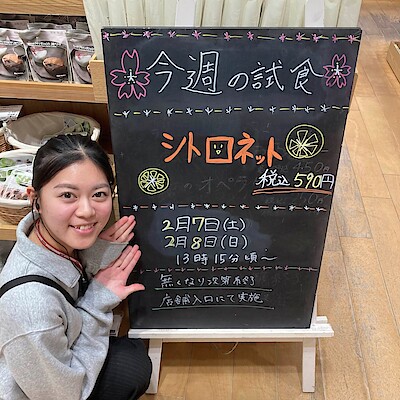 今週の試食
シトロネット
税込590円
2月7日(土)
2月8日(日)
13時15分頃〜
無くなり次第終了
店舗入口にて実施